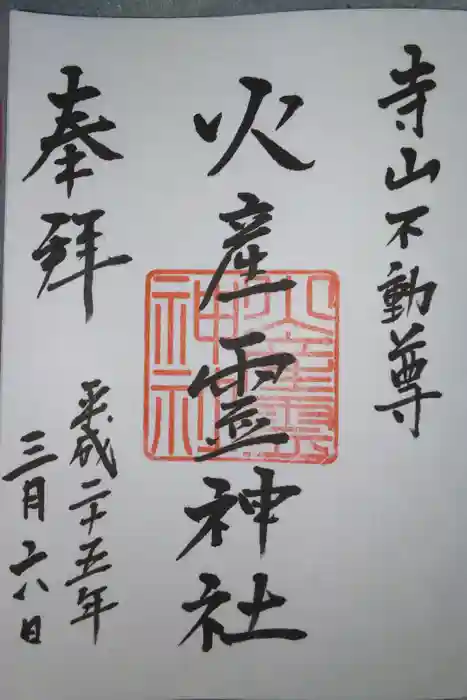 寺山不動尊
火産霊神社
火産霊神社
奉拝
平成二十五年
三月二八日